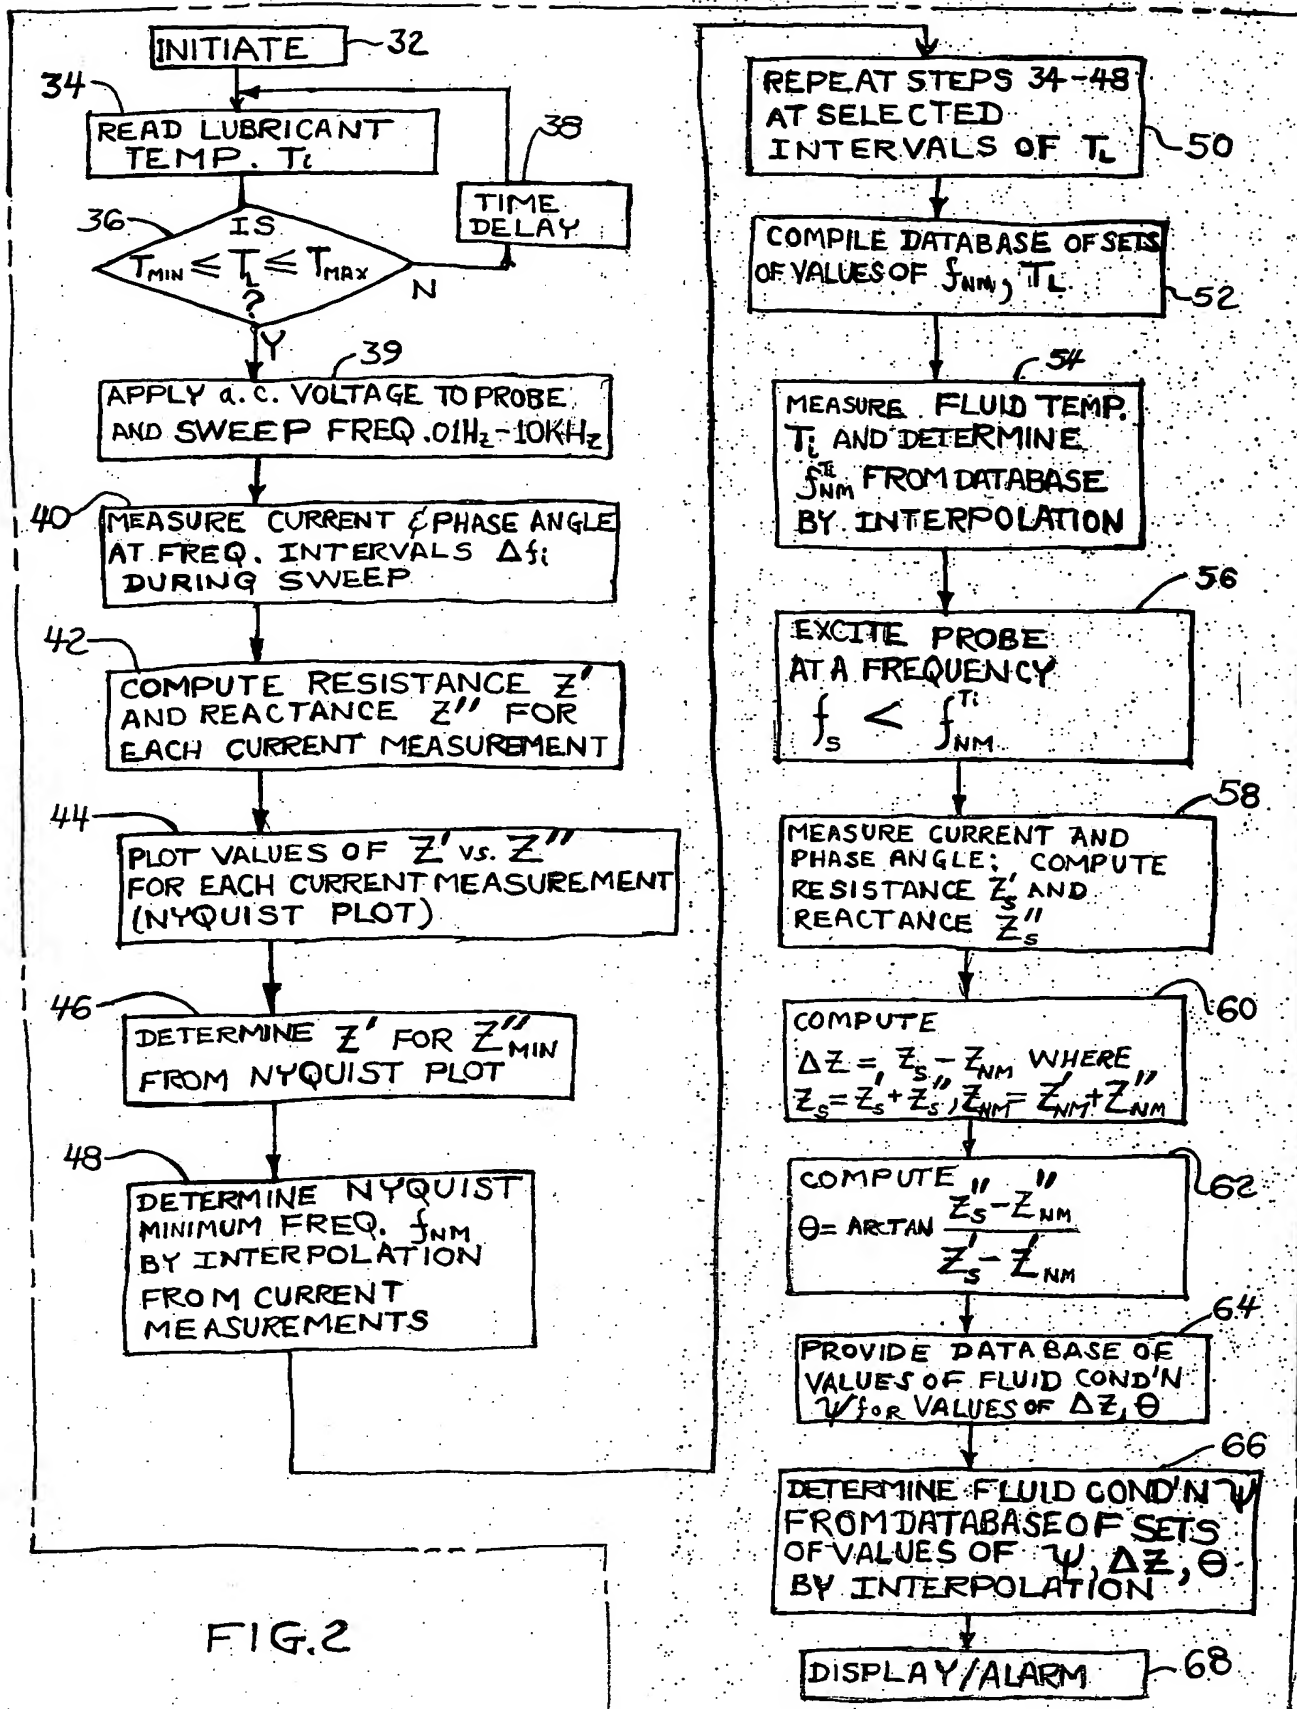 INITIATE
32
34
READ LUBRICANT
TEMP. Ti
38
TIME
DELAY
36
IS
TMIN ≤ TL ≤ TMAX
?
N
Y
39
APPLY a.c. VOLTAGE TO PROBE
AND SWEEP FREQ .01Hz-10KHz
40
MEASURE CURRENT & PHASE ANGLE
AT FREQ. INTERVALS Δfi
DURING SWEEP
42
COMPUTE RESISTANCE Z'
AND REACTANCE Z'' FOR
EACH CURRENT MEASUREMENT
44
PLOT VALUES OF Z' vs. Z''
FOR EACH CURRENT MEASUREMENT
(NYQUIST PLOT)
46
DETERMINE Z' FOR Z''MIN
FROM NYQUIST PLOT
48
DETERMINE NYQUIST
MINIMUM FREQ. fNM
BY INTERPOLATION
FROM CURRENT
MEASUREMENTS
REPEAT STEPS 34-48
AT SELECTED
INTERVALS OF TL
50
COMPILE DATABASE OF SETS
OF VALUES OF fNM, TL
52
54
MEASURE FLUID TEMP.
Ti AND DETERMINE
fNM^Ti FROM DATABASE
BY INTERPOLATION
56
EXCITE PROBE
AT A FREQUENCY
fS < fNM^Ti
58
MEASURE CURRENT AND
PHASE ANGLE; COMPUTE
RESISTANCE Z'S AND
REACTANCE Z''S
60
COMPUTE
ΔZ = ZS - ZNM WHERE
ZS = Z'S + Z''S, ZNM = Z'NM + Z''NM
62
COMPUTE
θ = ARCTAN (Z''S - Z''NM) / (Z'S - Z'NM)
64
PROVIDE DATABASE OF
VALUES OF FLUID COND'N
Ψ for VALUES OF ΔZ, θ
66
DETERMINE FLUID COND'N Ψ
FROM DATABASE OF SETS
OF VALUES OF Ψ, ΔZ, θ
BY INTERPOLATION
DISPLAY/ALARM
68
FIG.2